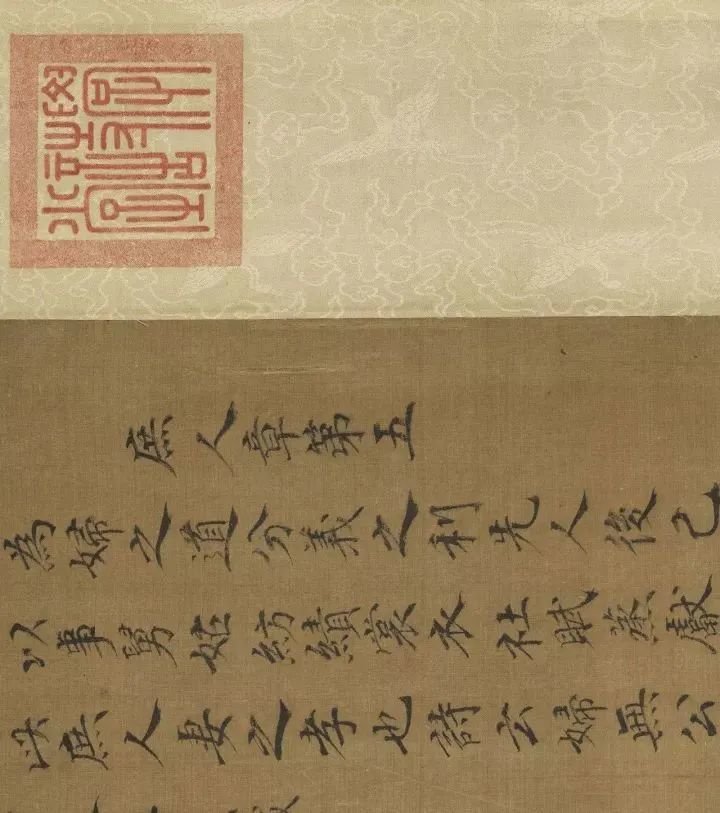 庶人章第五
為婦之道分義之利先人後己
以事舅姑紡績裳衣社賦蒸獻
此庶人妻之孝也詩云婦無公